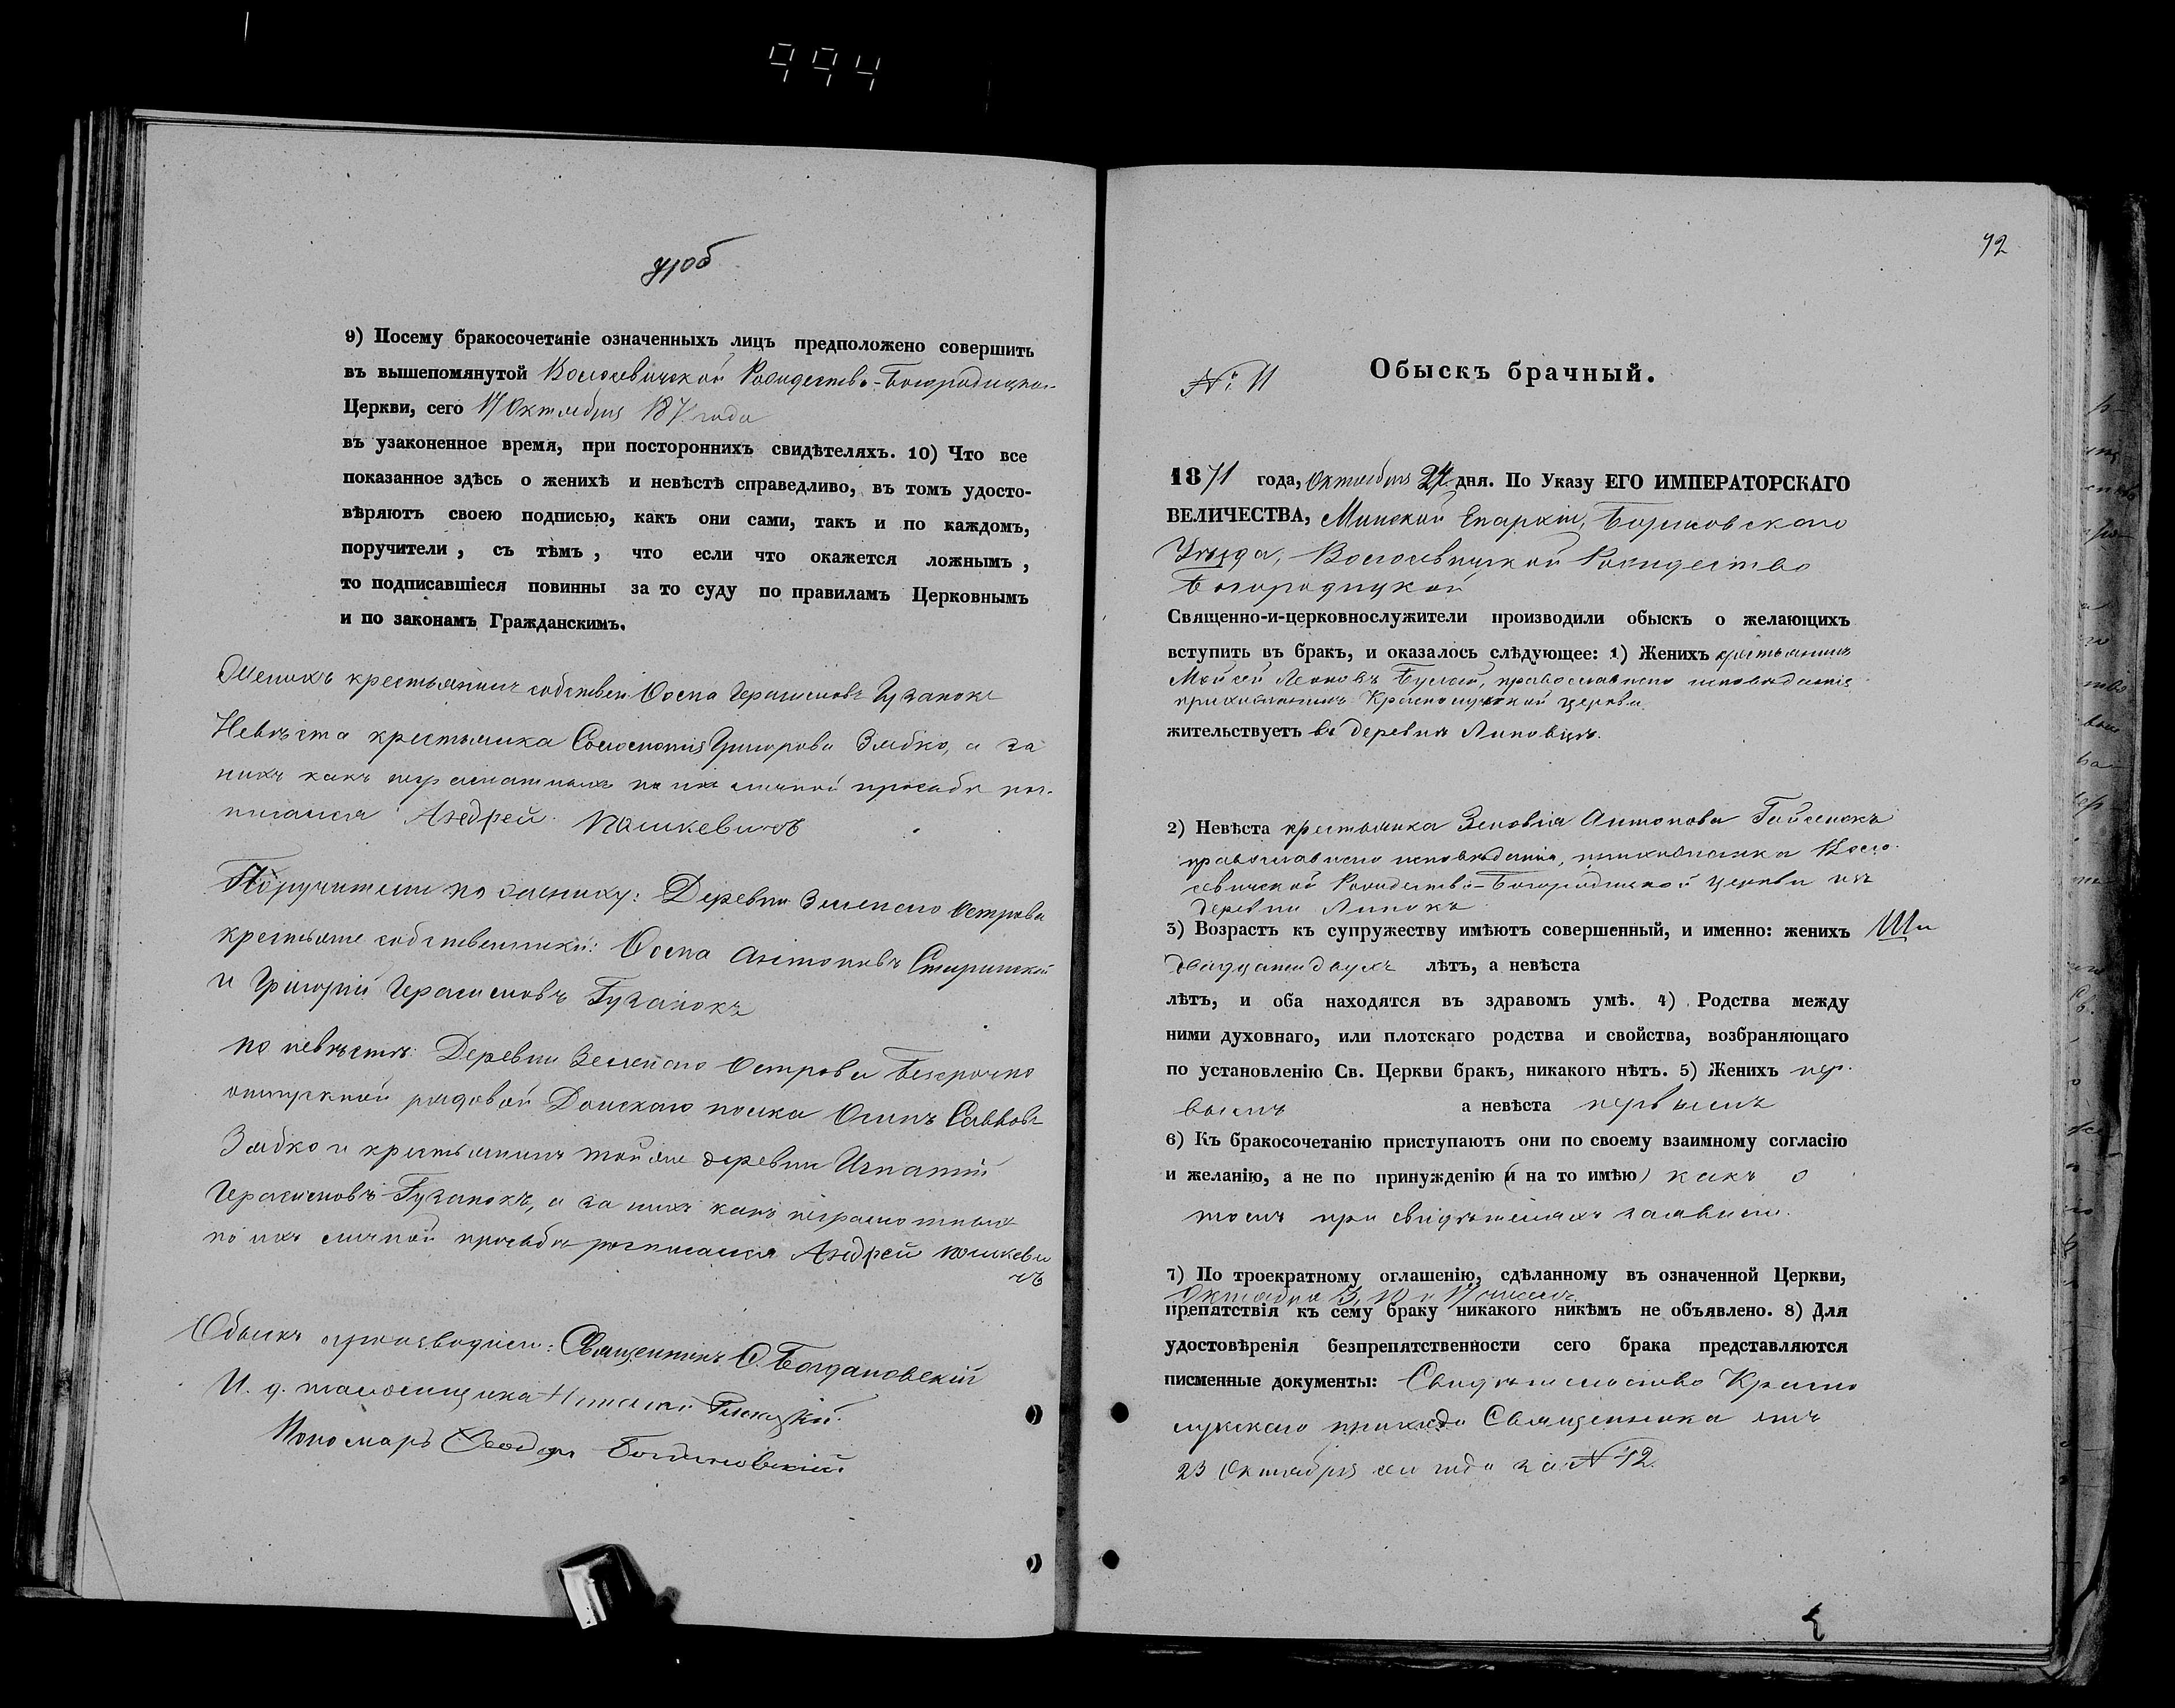 994
9) Посему бракосочетаніе означенныхъ лицъ предположено совершить
въ вышепомянутой Волосевичской Рождество-Богородицкой
Церкви, сего 17 Октября 1871 года
въ узаконенное время, при постороннихъ свидѣтеляхъ. 10) Что все
показанное здѣсь о женихѣ и невѣстѣ справедливо, въ томъ удосто-
вѣряютъ своею подписью, какъ они сами, такъ и по каждомъ,
поручители, съ тѣмъ, что если что окажется ложнымъ,
то подписавшіеся повинны за то суду по правиламъ Церковнымъ
и по законамъ Гражданскимъ.
Женихъ крестьянинъ собствен Осипа Герасимовъ Гузанокъ
Невѣста крестьянка Соломонія Григорова Зябко, а за
нихъ какъ неграмотныхъ по их личной просьбѣ рос-
писался Андрей Пошкевичъ
Поручители по жениху: Деревни Зеленаго Острова
крестьяне собственники: Осипа Антоновъ
и Григорій Герасимовъ Гузанокъ
по невѣстѣ: Деревни Зеленаго Острова Безсрочно
отпускной рядовой Донскаго полка Осипъ Савовъ
Зябко и крестьянинъ той же деревни Игнатій
Герасимовъ Гузанокъ, а за нихъ какъ неграмотныхъ
по ихъ личной просьбѣ росписался Андрей Пошкеви
чъ
Обыскъ производили: Священникъ О. Богдановскій
И. д. псаломщика
Пономарь Ѳеодоръ Богдановскій
92
№ 11
Обыскъ брачный.
1871 года, Октября 24 дня. По Указу ЕГО ИМПЕРАТОРСКАГО
ВЕЛИЧЕСТВА, Минской Епархіи, Борисовскаго
Уѣзда, Волосевичской Рождество
Богородицкой
Священно-и-церковнослужители производили обыскъ о желающихъ
вступить въ бракъ, и оказалось слѣдующее: 1) Женихъ крестьянинъ
Мойсей Леоновъ православнаго исповѣданія
прихожанинъ Краснолуцкой церкви
жительствуетъ въ деревнѣ Липовцѣ.
2) Невѣста крестьянка Зеновія Антонова Гайсенокъ
православнаго исповѣданія, прихожанка Воло-
севичской Рождество-Богородицкой церкви изъ
деревни Липокъ
3) Возрастъ къ супружеству имѣютъ совершенный, и именно: женихъ
двадцати двухъ лѣтъ, а невѣста
лѣтъ, и оба находятся въ здравомъ умѣ. 4) Родства между
ними духовнаго, или плотскаго родства и свойства, возбраняющаго
по установленію Св. Церкви бракъ, никакого нѣтъ. 5) Женихъ пер-
вымъ а невѣста первымъ
6) Къ бракосочетанію приступаютъ они по своему взаимному согласію
и желанію, а не по принужденію (и на то имѣю) какъ о
томъ при свидѣтеляхъ заявили.
7) По троекратному оглашенію, сдѣланному въ означенной Церкви,
Октября 3, 10 и 17 чиселъ
препятствія къ сему браку никакого никѣмъ не объявлено. 8) Для
удостовѣренія безпрепятственности сего брака представляются
писменные документы: Свидѣтельство Красно
лукскаго прихода Священника отъ
23 Октября сего года за № 42.